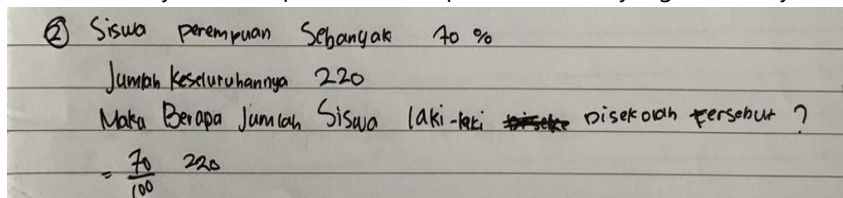 ② Siswa perempuan Sebanyak 70 %
Jumlah Keseluruhannya 220
Maka Berapa Jumlah Siswa laki-laki Disekolah tersebut ?
= 70/100 220